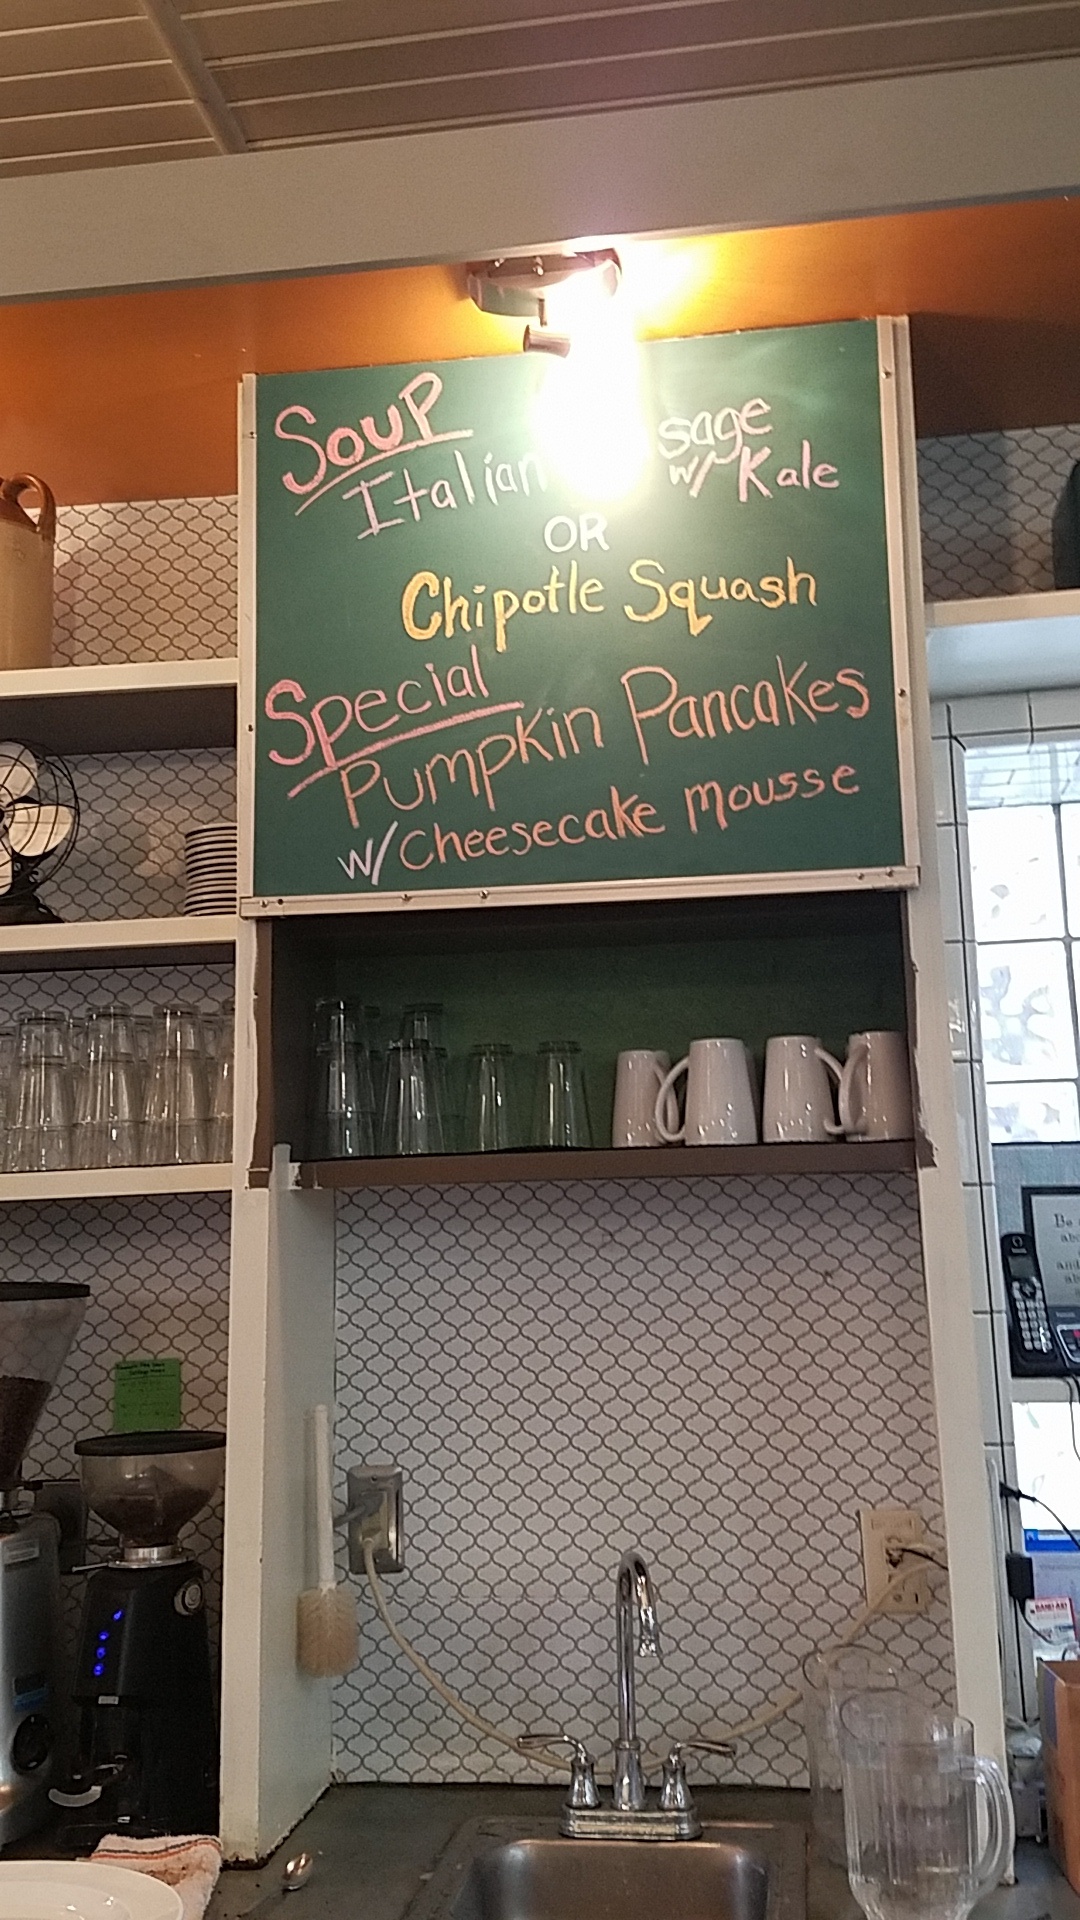 Soup
Italian sage
w/ Kale
OR
Chipotle Squash
Special
Pumpkin Pancakes
w/ Cheesecake mousse
Be